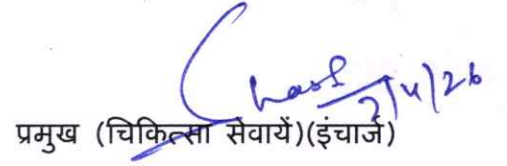 2/4/26
प्रमुख (चिकित्सा सेवायें)(इंचार्ज)